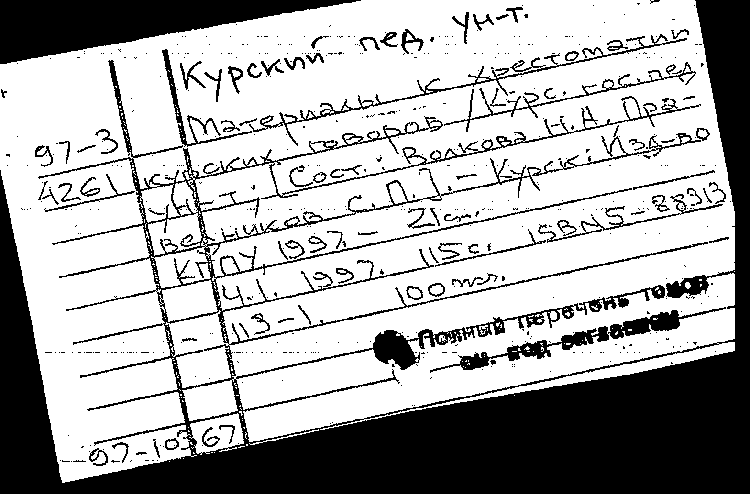 Курский пед. ун-т.
Материалы к хрестоматии
97-3 курских говоров / Курс. гос. пед.
4261 ун-т; [Сост.: Волкова Н.А. Пра-
ведников С.П.]. - Курск: Изд-во
КГПУ, 1997. - 21см.
Ч.1. 1997. 115с. ISBN 5-88313
- 113-1. 100экз.
Полный перечень томов
см. под заглавием
97-10367